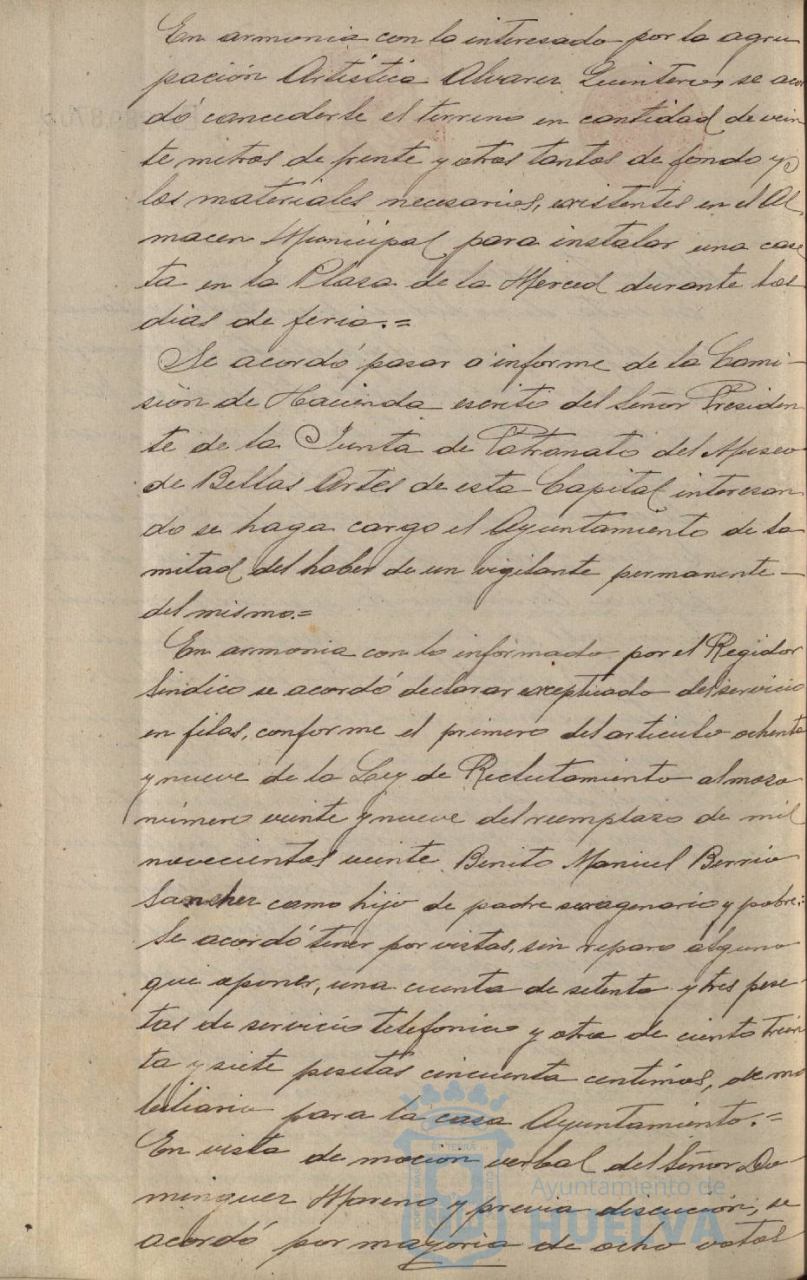 En armonia con lo interesado por la agru
pación Artistica Alvarez Quintero, se acor
dó concederle el terreno en cantidad de vein
te metros de frente y otros tantos de fondo y
los materiales necesarios, existentes en el Al
macen Municipal, para instalar una case
ta en la Plaza de la Merced durante los
dias de feria.=
Se acordó pasar a informe de la Comi-
sión de Hacienda escrito del Señor Presiden
te de la Junta de Patronato del Museo
de Bellas Artes de esta Capital interesan
do se haga cargo el Ayuntamiento de la
mitad del haber de un vigilante permanente-
del mismo.=
En armonia con lo informado por el Regidor
Sindico se acordó declarar exceptuado del servicio
en filas, conforme el primero del articulo ochenta
y nueve de la Ley de Reclutamiento al mozo
número veinte y nueve del reemplazo de mil
novecientos veinte Benito Manuel Berrio
Sanchez como hijo de padre sexagenario y pobre:
Se acordó tener por vistas, sin reparo alguno
que oponer, una cuenta de setenta y tres pese-
tas de servicio telefonico y otra de ciento trein
ta y siete pesetas cincuenta centimos, de mo
biliario para la casa Ayuntamiento.=
En vista de moción verbal del Señor Do
minguez Moreno y previa discución, se
acordó por mayoria de ocho votos
Ayuntamiento de
HUELVA